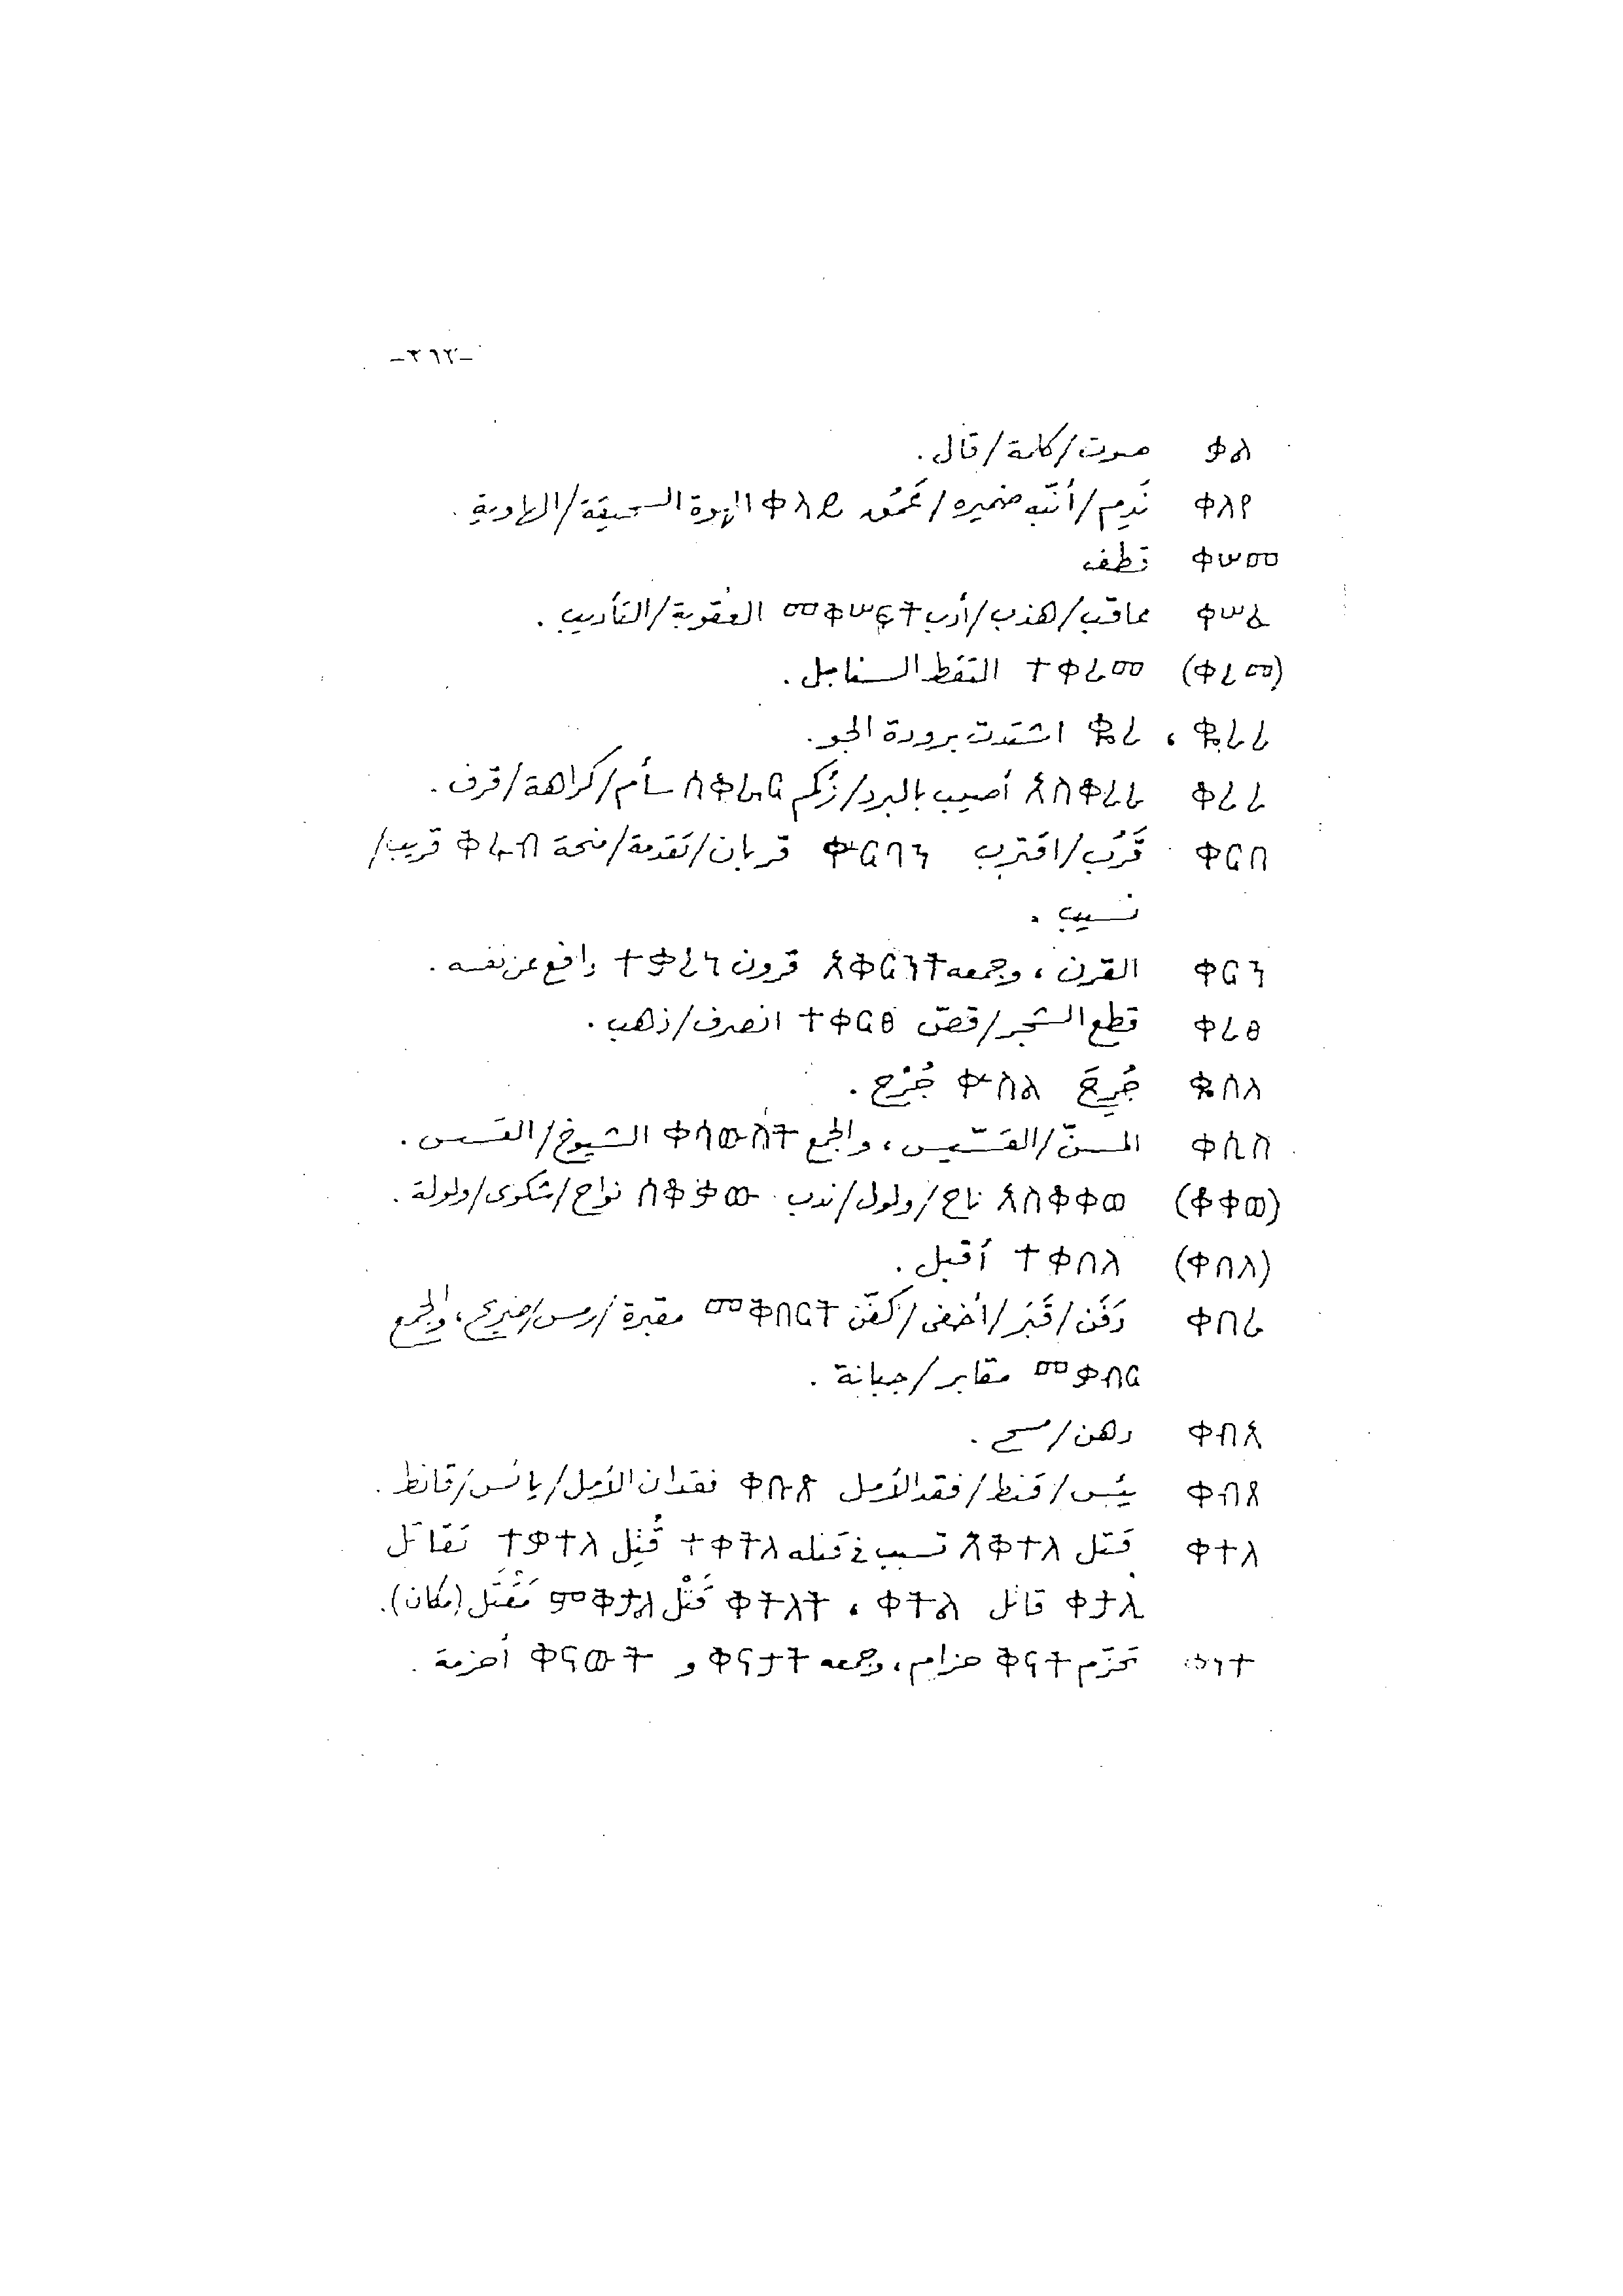 -٣٦٢-
ቃል صوت/كلمة/قال.
ቀለየ نَدِم/أنّبه ضميره/عَمُق ቀላይ الهوة السحيقة/الهاوية.
ቀሠመ قطف
ቀሠፈ عاقب/هذب/أدب መቅሠፍት العقوبة/التأديب.
(ቀረመ) ተቀረመ التقط السنابل.
ቈረረ، ቈረ اشتدت برودة الجو.
ቀረረ አስቀረረ أصيب بالبرد/زُكم ሰቆራር سأم/كراهة/قرف.
ቀርበ قَرُب/اقترب ቍርባን قربان/تقدمة/منحة ቅሩብ قريب/
نسيب.
ቀርን القرن، وجمعه አቅርንት قرون ተቃረነ دافع عن نفسه.
ቀረፀ قطع الشجر/قصّ ተቀርፀ انصرف/ذهب.
ቈስለ جُرِحَ ቍስል جُرْح.
ቀሲስ المسنّ/القسّيس، والجمع ቀሳውስት الشيوخ/القسس.
(ቆቀወ) አስቆቀወ ناح/ولول/ندب ሰቆቃው نواح/شكوى/ولولة.
(ቀበለ) ተቀበለ أقبل.
ቀበረ دَفَن/قَبَر/أخفى/كفّن መቅበርት مقبرة/رمس/ضريح، والجمع
መቃብር مقابر/جبانة.
ቀብአ دهن/مسح.
ቀብጸ يئس/قنط/فقد الأمل ቅቡጽ فقدان الأمل/يائس/قانط.
ቀተለ قَتل አቅተለ تسبب في قتله ተቀትለ قُتِل ተቃተለ تقاتل
ቀታሊ قاتل ቀትል، ቅትለት قَتْل ምቅታል مَقْتَل (مكان).
ቀነተ تحزّم ቅናት حزام، وجمعه ቅናታት و ቅናውት أحزمة.